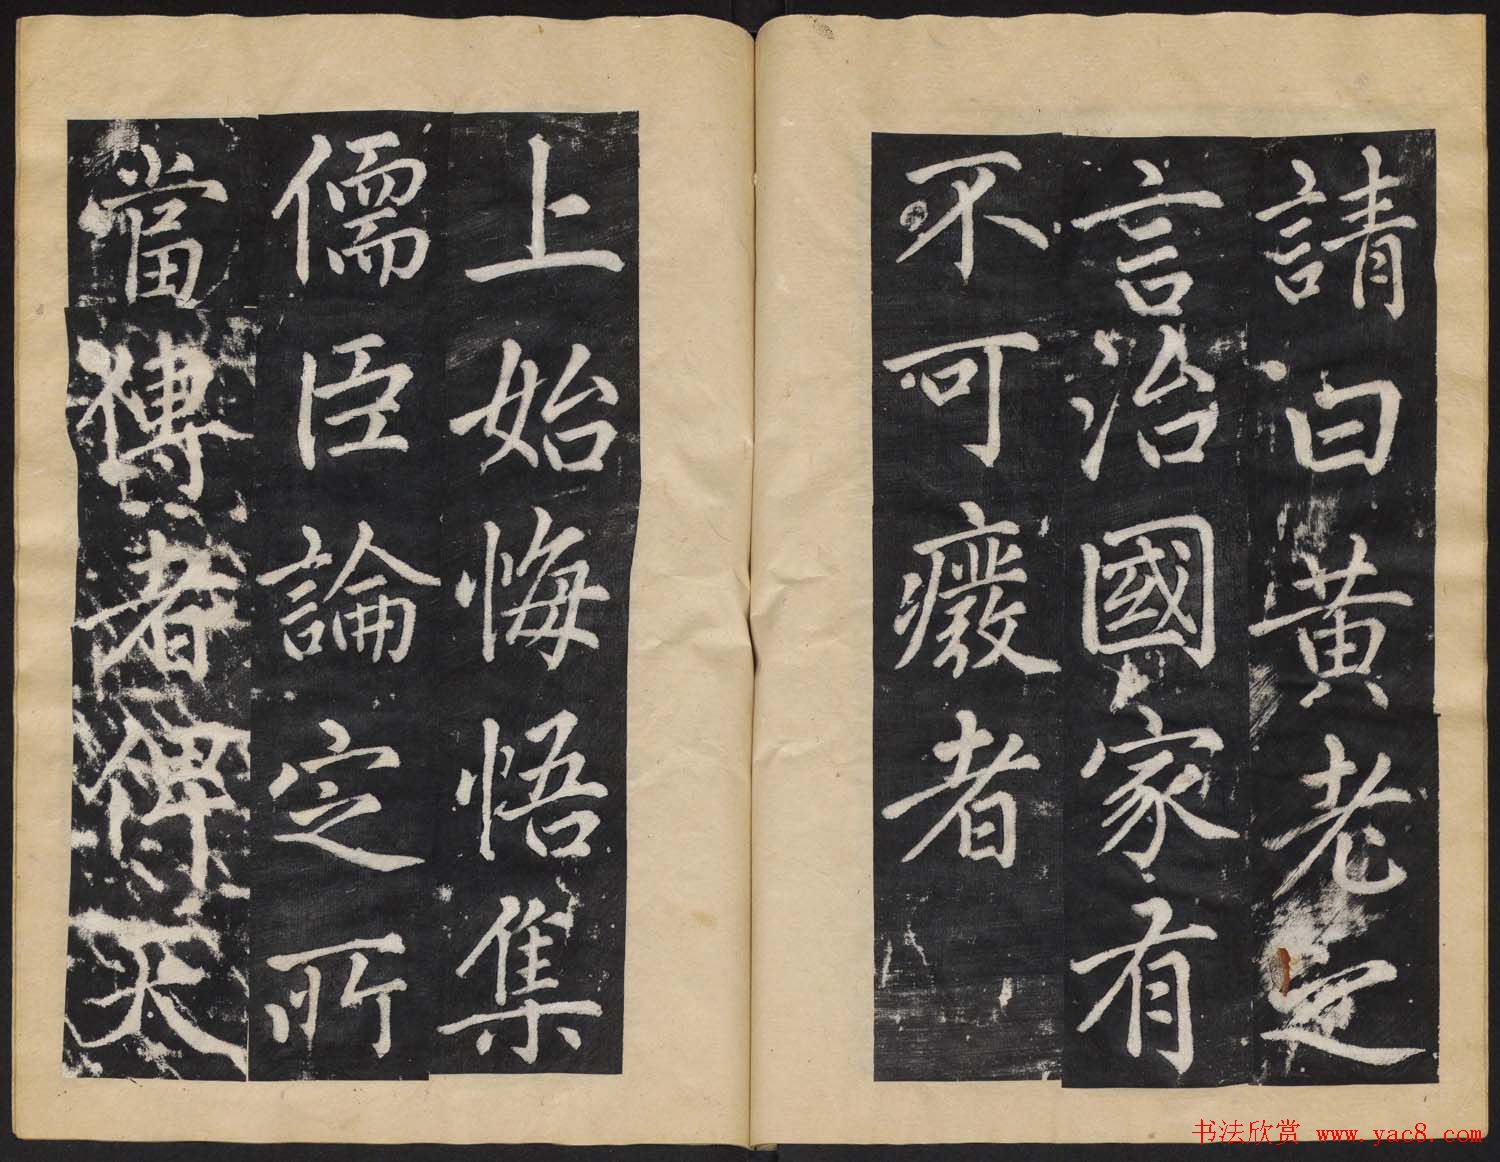 請曰黃老之
言治國家有
不可癈者
上始悔悟集
儒臣論定所
當傳者俾天
书法欣赏 www.yac8.com